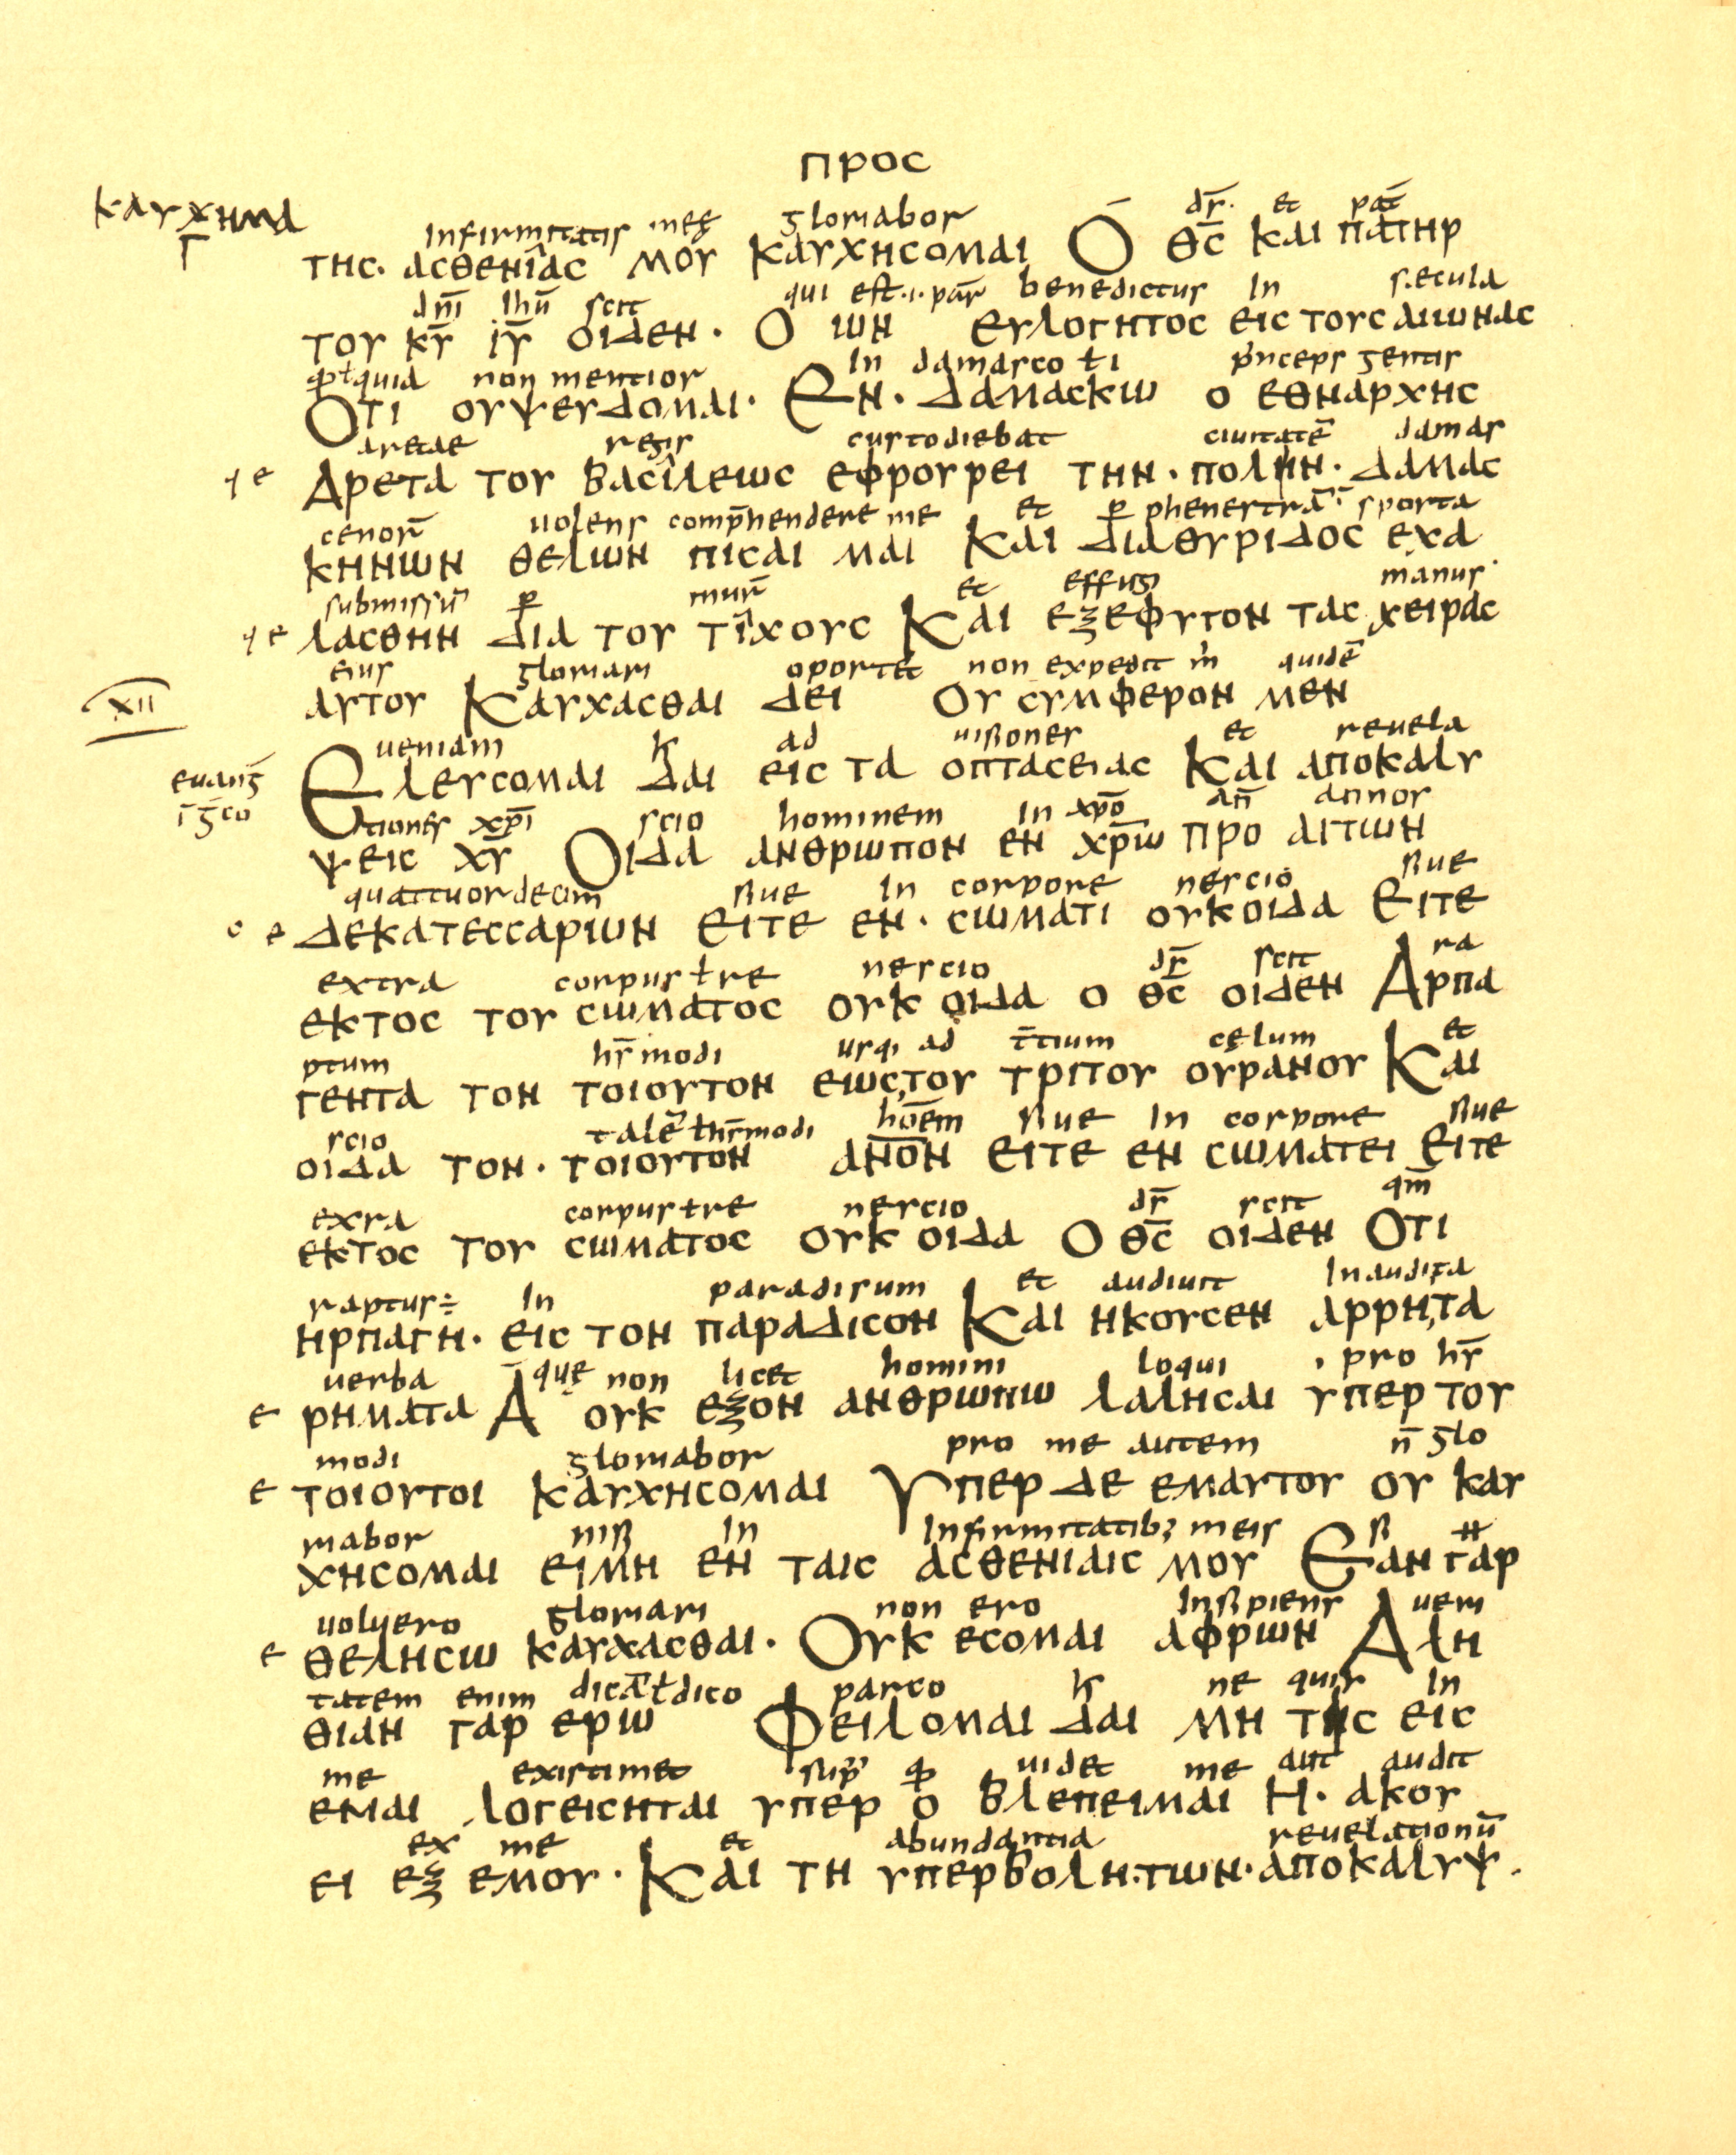 προc
καυχημα
Γ
infirmitatis meę gloriabor dς̄ et pat̄
τηc· αcθενιαc μου καυχηcομαι Ο θ̅c̅ και πατηρ
dn̄i ihū scit qui est .i. pat̄ benedictus in secula
του κ̅υ̅ ι̅υ̅ οιδεν· Ο ιων ευλογητοc ειc τουc αιωναc
quia non mentior in damasco ƚ i p̄nceps gentis
Οτι ουψευδομαι· Εν· δαμαcκω ο εθναρχηc
aretae regis custodiebat ciuitatē damas
Αρετα του βαcιλεωc εφρουρει την· πολην· δαμαc
cenoꝝ uolens comp̄hendere me et ꝑ phenestrā ī sporta
κηνων θελων πιcαι μαι Και διαθυριδοc εχα
submissū ꝑ muꝝ et effugi manus
λαcθην δια του τιχουc Και εξεφυγον ταc χειραc
eius gloriari oportet non expedit m̄ quidē
αυτου Καυχαcθαι δει Ου cυμφερον μεν
XII
ueniam ad uisiones et reuela
Ελευcομαι δαι ειc τα οπταcειαc Και αποκαλυ
euang̅
tiones xp̄i scio hominem in xp̄o añ annos
ψειc χ̅υ̅ Οιδα ανθρωπον εν χ̅ρ̅ω̅ προ αιτων
quattuordecim siue in corpore nescio siue
δεκατεccαριων ειτε εν· cωματι ουκοιδα Ειτε
extra corpus ƚ re nescio dς̄ scit ra
εκτοc του cωματοc ουκ οιδα ο θ̅c̅ οιδεν Αρπα
ptum hꝰmodi usqꝫ ad t̄tium cęlum et
γεντα τον τοιουτον εωc, του τριτου ουρανου Και
scio talē ƚ hꝰmodi hōēm siue in corpore siue
οιδα τον· τοιουτον α̅ν̅ο̅ν̅ ειτε εν cωματει Ειτε
exra corpus ƚ re nescio dς̄ scit qm̄
εκτοc του cωματοc ουκ οιδα Ο θ̅c̅ οιδεν Οτι
raptus ÷ in paradisum et audiuit inaudita
ηρπαγη· ειc τον παραδιcον Και ηκουcεν αρρη,τα
uerba quę non licet homini loqui pro hꝰ
ρηματα Α ουκ εξον ανθρωπω λαληcαι υπερ του
modi gloriabor pro me autem n̄ glo
τοιουτοι καυχηcομαι Υπερ δε εμαυτου ου καυ
riabor nisi in infirmitatibꝫ meis si
χηcομαι ειμη εν ταιc αcθενιαιc μου Εαν γαρ
uoluero gloriari non ero insipiens ueri
θεληcω καυχαcθαι· Ουκ εcομαι αφρων Αλη
tatem enim dicā ƚ dico parco ne quis in
θιαν γαρ ερω Φειλομαι δαι μη τιc ειc
me existimet sup̄ uidet me aut audit
εμαι λογειcηται υπερ ο βλεπειμαι Η· ακου
ex me et abundantia reuelationū
ει εξ εμου· Και τη υπερβολη· των· αποκαλυψ·